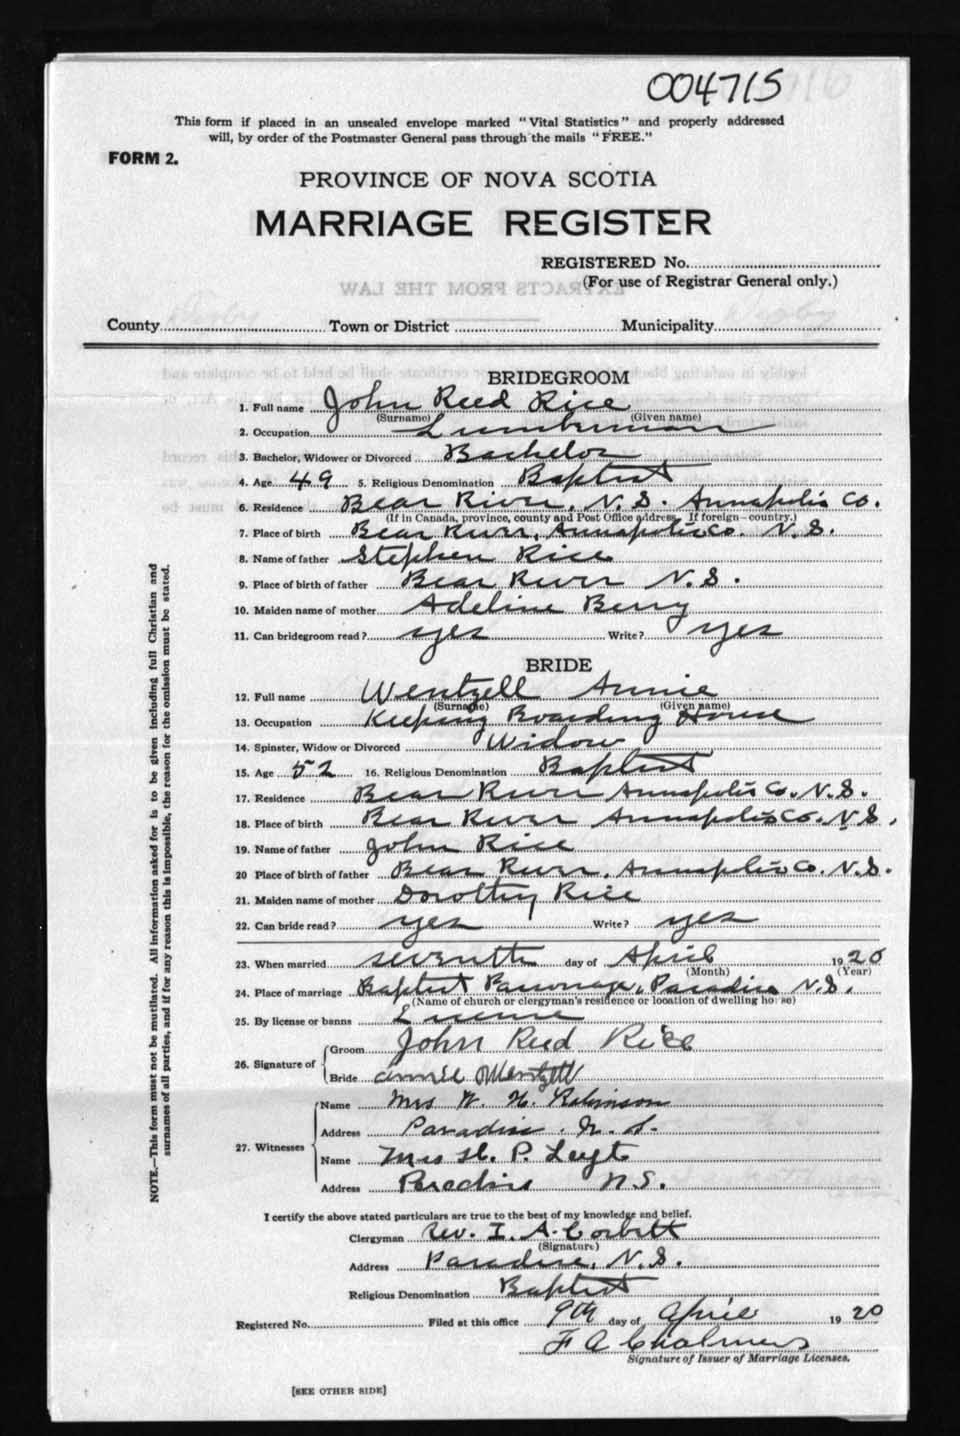 004715
This form if placed in an unsealed envelope marked "Vital Statistics" and properly addressed
will, by order of the Postmaster General pass through the mails "FREE."
FORM 2.
PROVINCE OF NOVA SCOTIA
MARRIAGE REGISTER
REGISTERED No.
(For use of Registrar General only.)
EXTRACTS FROM THE LAW
County Town or District Municipality
BRIDEGROOM
1. Full name John Reed Rice
(Surname) (Given name)
2. Occupation Lumberman
3. Bachelor, Widower or Divorced Bachelor
4. Age 49 5. Religious Denomination Baptist
6. Residence Bear River, N.S. Annapolis Co.
(If in Canada, province, county and Post Office address. If foreign—country.)
7. Place of birth Bear River, Annapolis Co. N.S.
8. Name of father Stephen Rice
9. Place of birth of father Bear River N.S.
10. Maiden name of mother Adeline Berry
11. Can bridegroom read? yes Write? yes
BRIDE
12. Full name Wentzell Annie
(Surname) (Given name)
13. Occupation Keeping Boarding House
14. Spinster, Widow or Divorced Widow
15. Age 52 16. Religious Denomination Baptist
17. Residence Bear River Annapolis Co. N.S.
18. Place of birth Bear River Annapolis Co. N.S.
19. Name of father John Rice
20 Place of birth of father Bear River, Annapolis Co. N.S.
21. Maiden name of mother Dorothy Rice
22. Can bride read? yes Write? yes
23. When married seventh day of April 1920
(Month) (Year)
24. Place of marriage Baptist Parsonage, Paradise N.S.
(Name of church or clergyman's residence or location of dwelling house)
25. By license or banns License
26. Signature of Groom John Reed Rice
Bride Annie Wentzell
27. Witnesses Name Mrs W. H. Robinson
Address Paradise. N.S.
Name Mrs H. P.
Address Paradise N.S.
I certify the above stated particulars are true to the best of my knowledge and belief.
Clergyman Rev. I. A. Corbett
(Signature)
Address Paradise, N.S.
Religious Denomination Baptist
Registered No. Filed at this office 9th day of April 1920
F A Chalmers
Signature of Issuer of Marriage Licenses.
[SEE OTHER SIDE]
NOTE.—This form must not be mutilated. All information asked for is to be given including full Christian and
surnames of all parties, and if for any reason this is impossible, the reason for the omission must be stated.